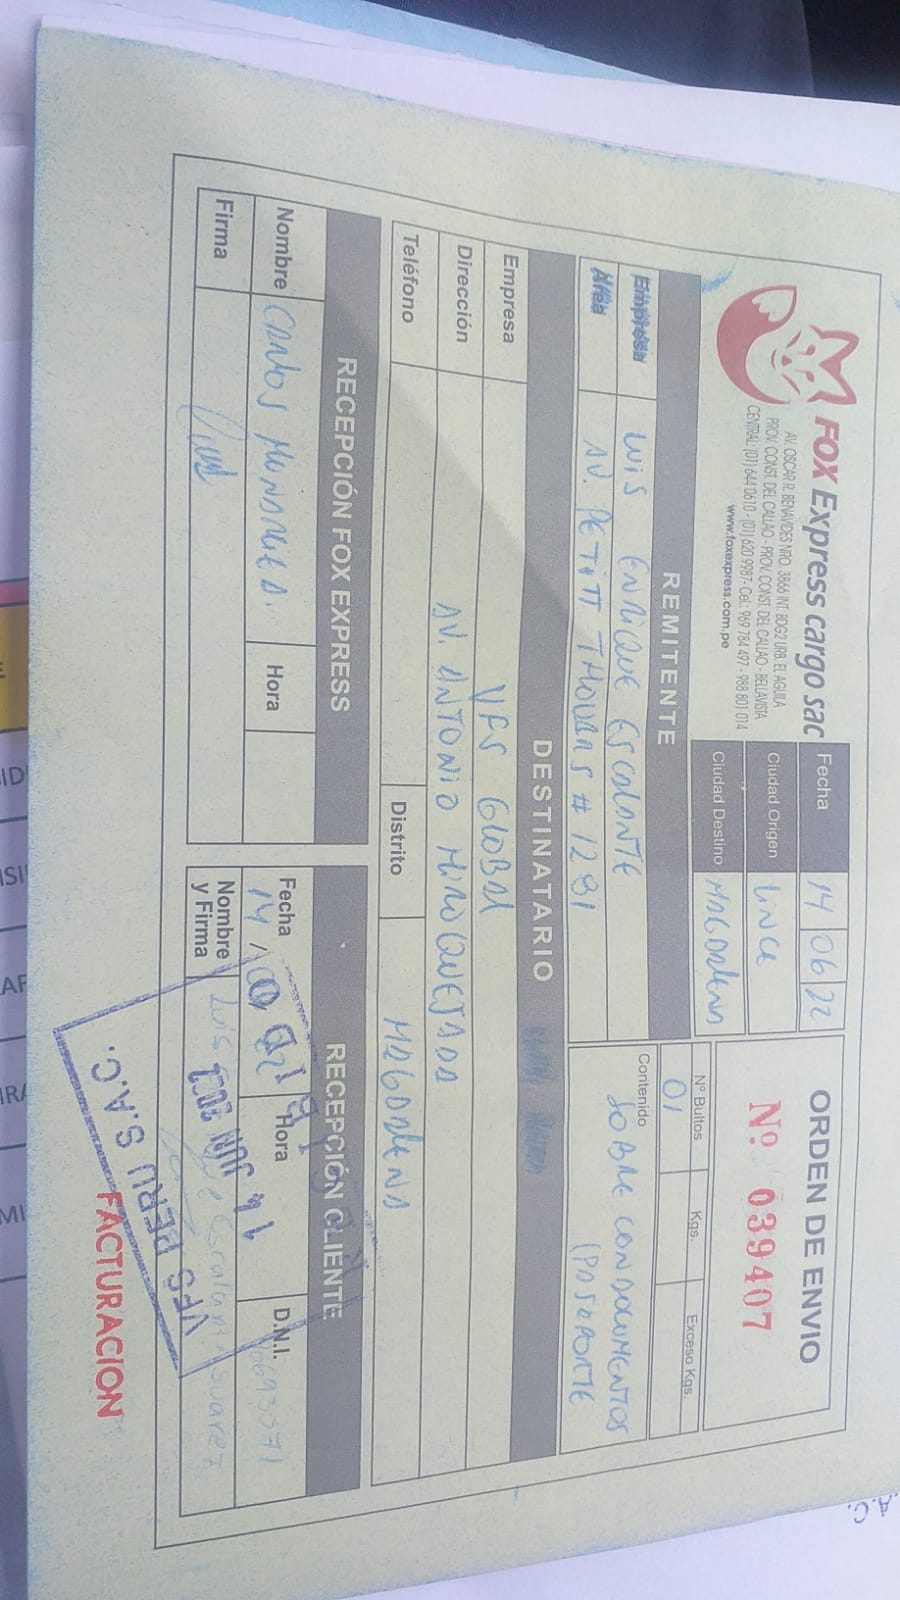 FOX Express cargo sac
AV. OSCAR R. BENAVIDES NRO. 3866 INT. BDG2 URB. EL AGUILA
PROV. CONST. DEL CALLAO - PROV. CONST. DEL CALLAO - BELLAVISTA
CENTRAL: (01) 644 0610 - (01) 620 9987 - Cel.: 969 784 497 - 988 801 014
www.foxexpress.com.pe
Fecha 14 06 22
Ciudad Origen LINCE
Ciudad Destino MAGDALENA
ORDEN DE ENVIO
Nº 039407
Nº Bultos Kgs. Exceso Kgs.
01
REMITENTE
Empresa LUIS ENRIQUE ESCALANTE
Area AV. PETIT THOUARS # 1281
Contenido
SOBRE CON DOCUMENTOS
(PASAPORTE
DESTINATARIO
Empresa VFS GLOBAL
Dirección AV. ANTONIO MIROQUESADA
Teléfono Distrito MAGDALENA
RECEPCIÓN FOX EXPRESS
Nombre CARLOS Hora
Firma
RECEPCIÓN CLIENTE
Fecha 14 / Hora D.N.I.
Nombre y Firma Luis Escalante Suarez
VFS PERU S.A.C.
FACTURACION
A.C.